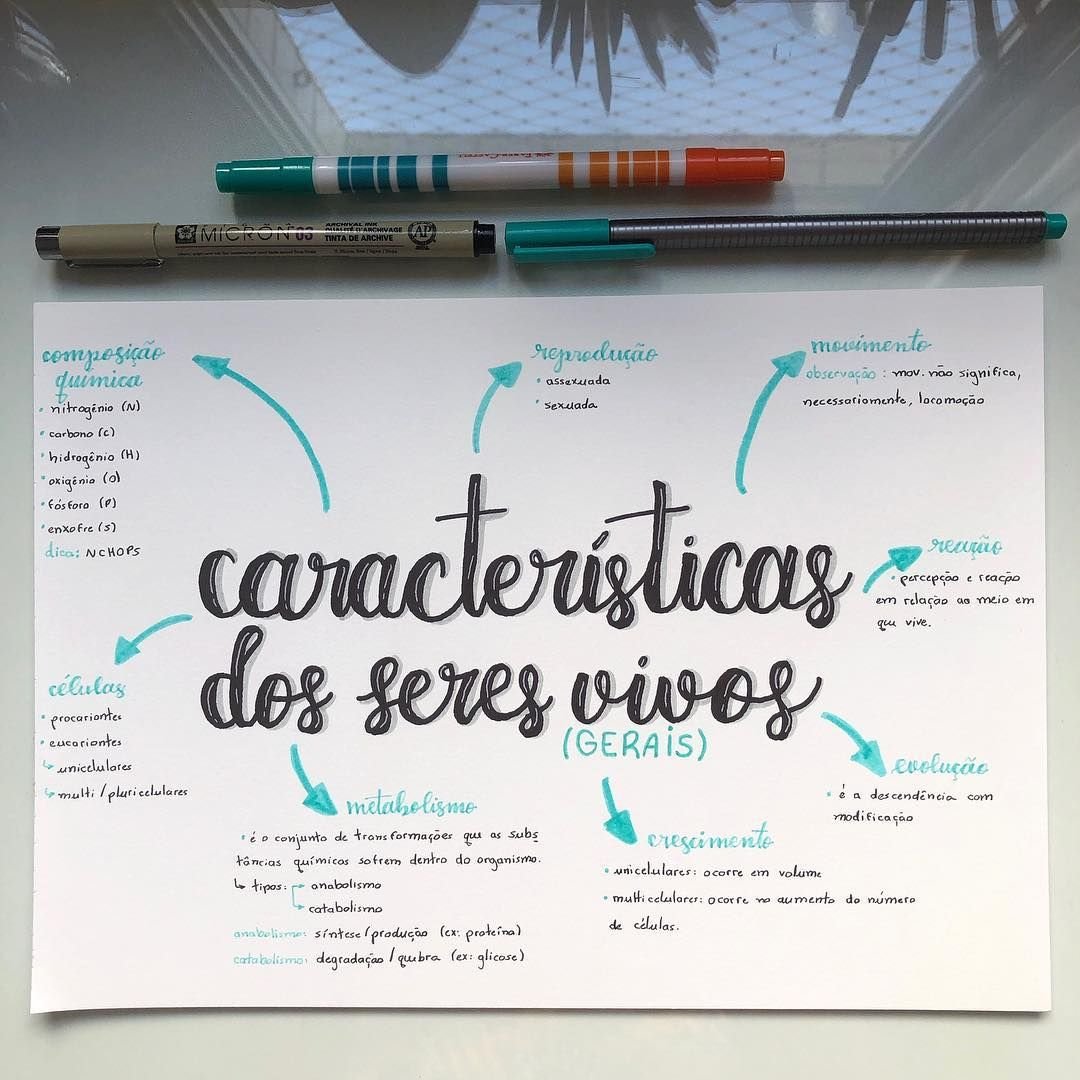 FABER-CASTELL
MICRON 03
ARCHIVAL INK
QUALITÉ D'ARCHIVAGE
TINTA DE ARCHIVE
AP
composição
química
• nitrogênio (N)
• carbono (C)
• hidrogênio (H)
• oxigênio (O)
• fósforo (P)
• enxofre (S)
dica: NCHOPS
reprodução
• assexuada
• sexuada
movimento
observação: mov. não significa,
necessariamente, locomoção
características
dos seres vivos
(GERAIS)
reação
• percepção e reação
em relação ao meio em
que vive.
células
• procariontes
• eucariontes
↳ unicelulares
↳ multi/pluricelulares
evolução
• é a descendência com
modificação
metabolismo
• é o conjunto de transformações que as subs
tâncias químicas sofrem dentro do organismo.
↳ tipos: → anabolismo
→ catabolismo
anabolismo: síntese/produção (ex: proteína)
catabolismo: degradação/quebra (ex: glicose)
crescimento
• unicelulares: ocorre em volume
• multicelulares: ocorre no aumento do número
de células.